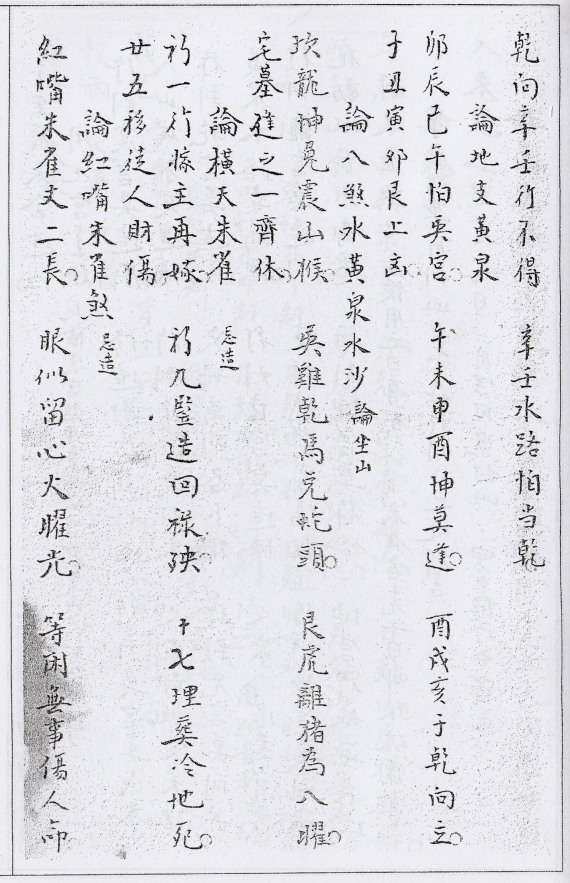 乾向辛壬行不得　辛壬水路怕当乾
論地支黄泉
卯辰巳午怕巽宮　午未申酉坤莫逢　酉戌亥子乾向立
子丑寅卯艮上凶
論八煞水黃泉水沙論坐山
坎龍坤兎震山猴　巽雞乾馬兌蛇頭　艮虎離猪為八曜
宅墓逢之一齊休
論橫天朱雀　忌造
初一行嫁主再嫁　初九竪造回祿殃　十七埋葬冷地死
廿五移徒人財傷
論紅嘴朱雀煞　忌造
紅嘴朱雀丈二長　眼似留心火曜光　等闲無事傷人命